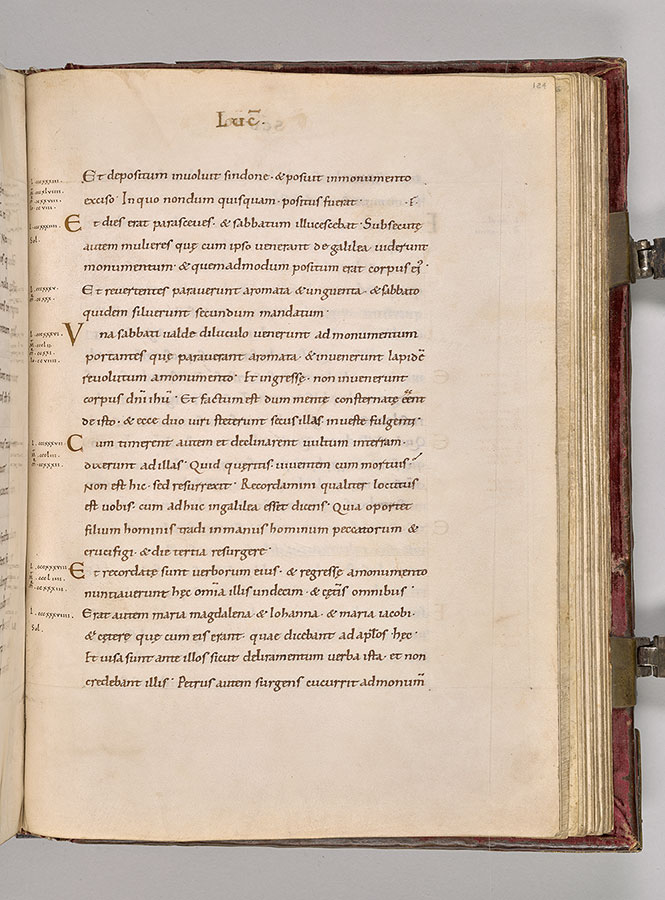 181
Luc̄.
Et depositum involuit sindone · & posuit inmonumento
exciso · In quo nondum quisquam · positus fuerat ·
Et dies erat parasceues · & sabbatum illucescebat · Subsecutę
autem mulieres quę cum ipso venerant de galilea viderunt
monumentum · & quemadmodum positum erat corpus ei'
Et revertentes paraverunt aromata & unguenta · & sabbato
quidem siluerunt secundum mandatum ·
Vna sabbati valde diluculo venerunt ad monumentum
portantes quę paraverant aromata · & invenerunt lapidē
revolutum amonumento · Et ingressę · non invenerunt
corpus dn̄i ihū · Et factum est dum mente consternatę eēnt
de isto · & ecce duo viri steterunt secus illas investe fulgenti ·
Cum timerent autem et declinarent vultum interram ·
dixerunt ad illas · Quid queritis viventem cum mortuis
Non est hic · sed resurrexit · Recordamini qualiter locutus
est vobis · cum adhuc ingalilea esset dicens · Quia oportet
filium hominis tradi inmanus hominum peccatorum &
crucifigi · & die tertia resurgere ·
Et recordatę sunt verborum eius · & regressę amonumento
nuntiaverunt hęc omīa illis undecim · & cęt̄is omnibus ·
Erat autem maria magdalena & Iohanna · & maria iacobi ·
& cęterę quę cum eis erant · quae dicebant ad apl̄os hęc ·
Et visa sunt ante illos sicut deliramentum verba ista · et non
credebant illis · Petrus autem surgens cucurrit ad monum̄